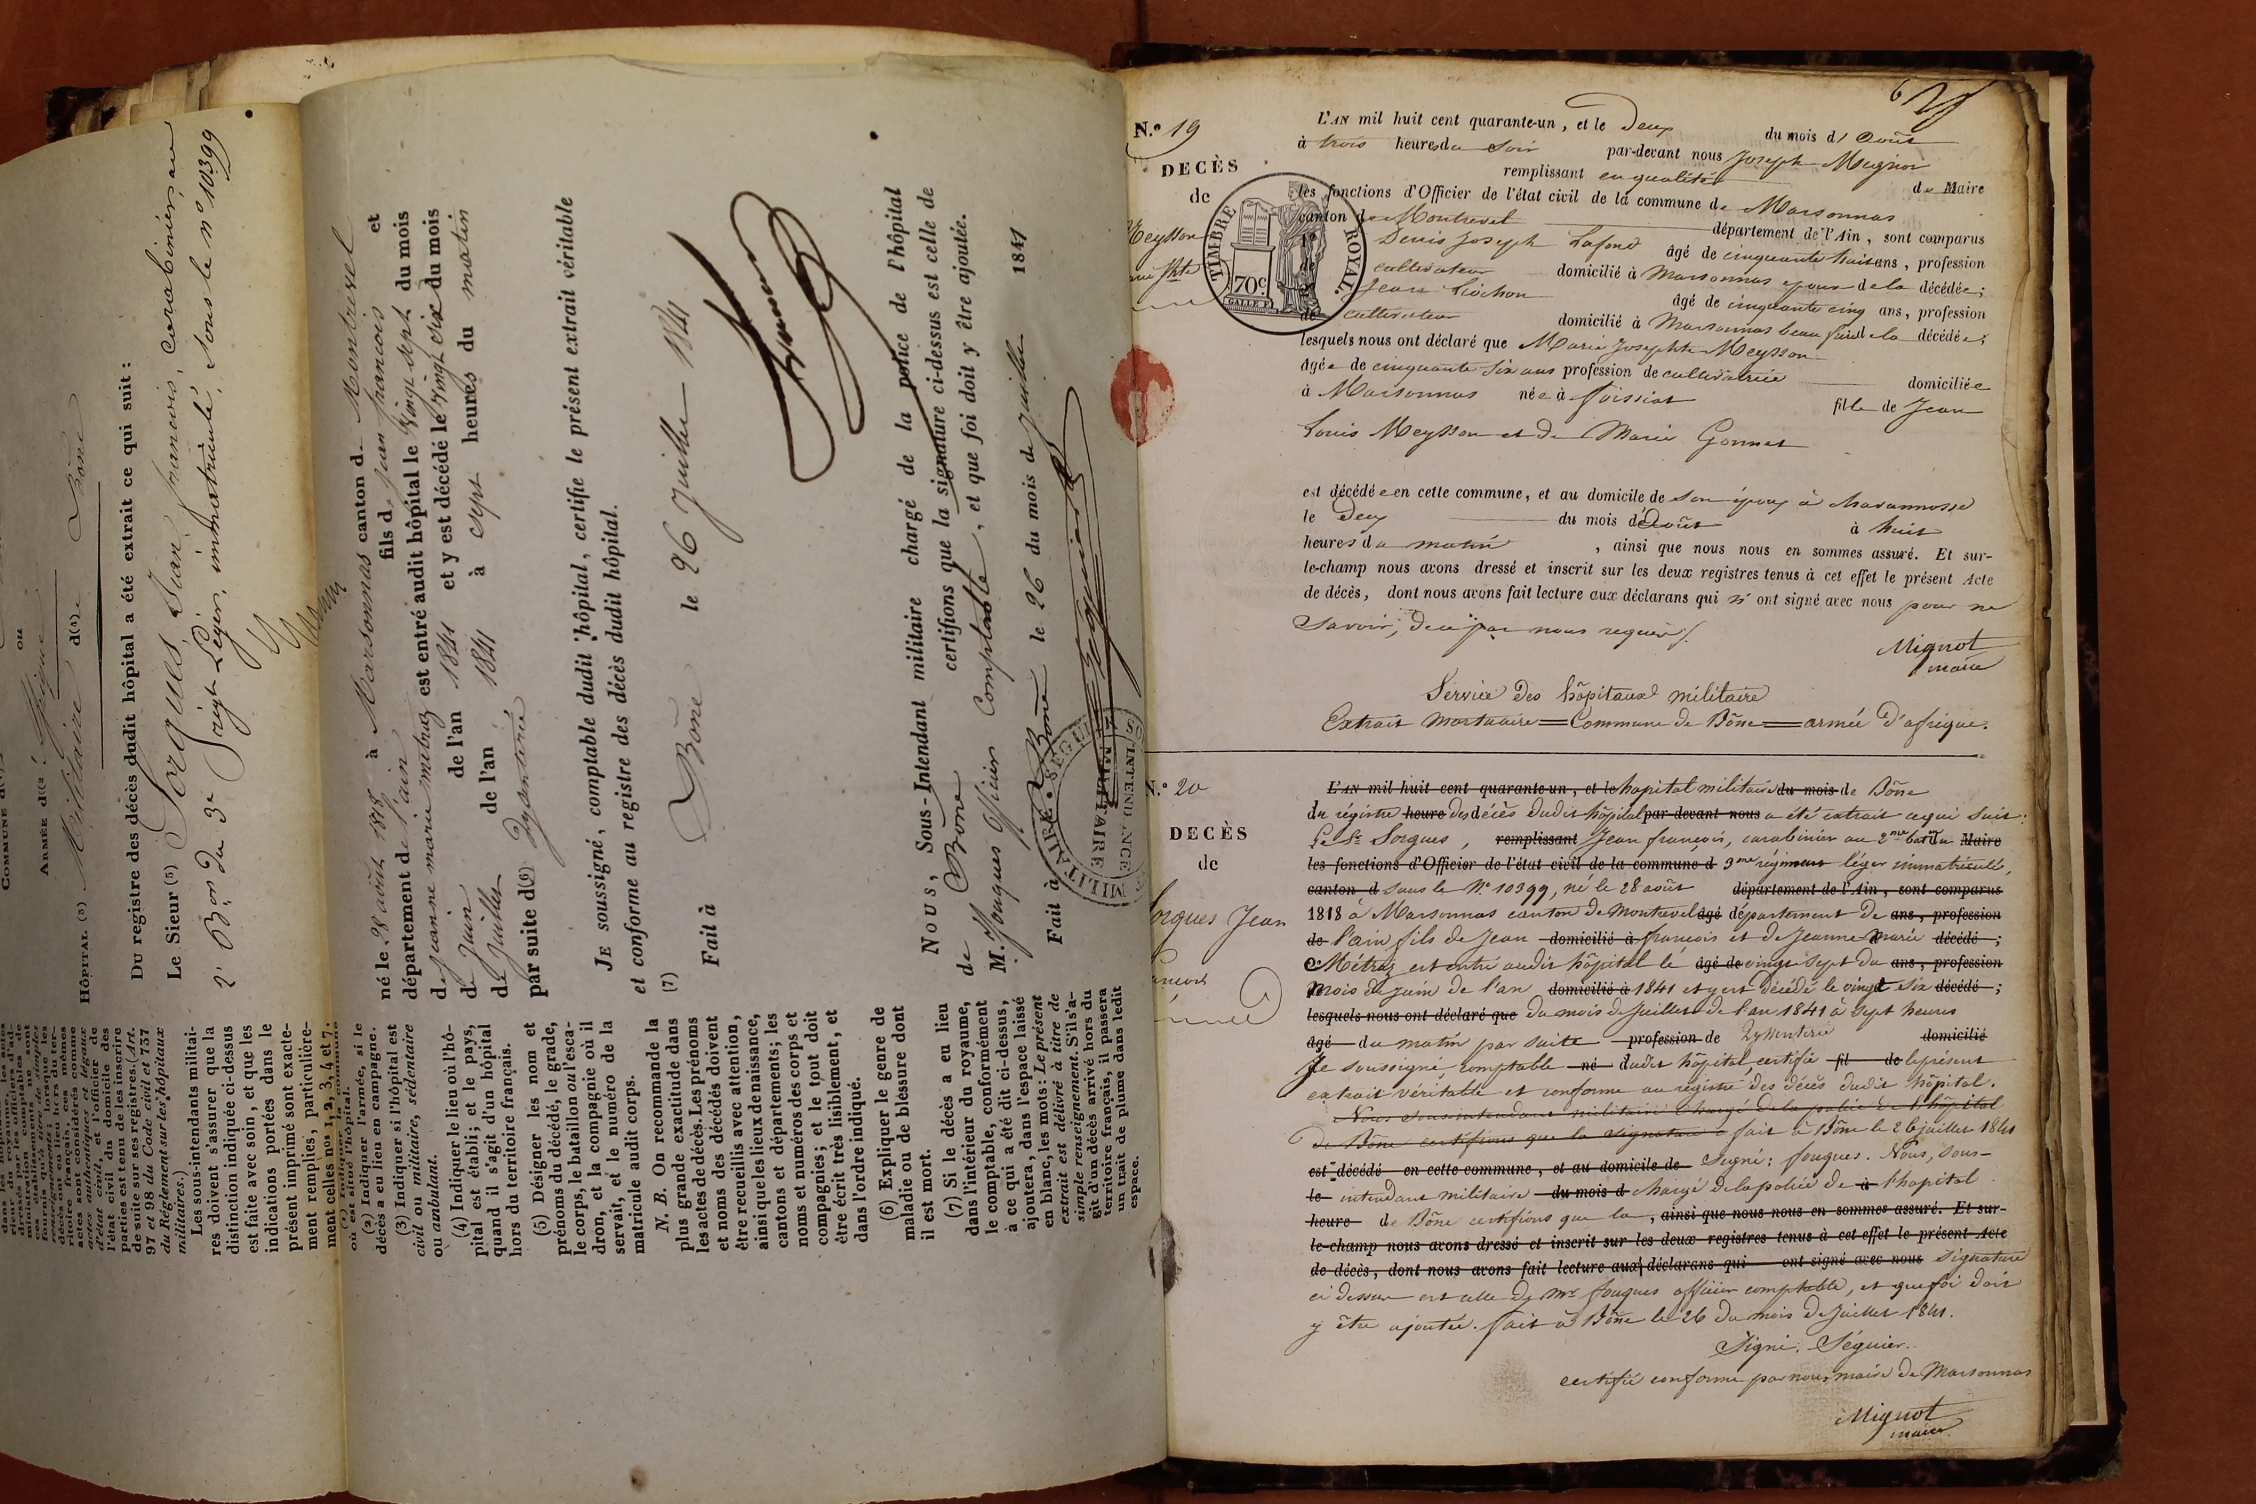 COMMUNE d(1)
ou
ARMÉE d(2) Afrique
HÔPITAL (3) Militaire d(4) Bône
Du registre des décès dudit hôpital a été extrait ce qui suit :
Le Sieur (5) Sorgues Jean françois, carabinier au
2e Bon du 3e régt Léger, immatriculé, sous le no 10399
né le 28 août 1818 à Marsonnas canton d. Montrevel
département de l'ain fils d. jean françois et
d. jeanne marie métraz est entré audit hôpital le Vingt sept du mois
d. Juin de l'an 1841 et y est décédé le vingt six du mois
d. Juillet de l'an 1841 à sept heures du matin
par suite d(6) Dyssenterie
JE soussigné, comptable dudit hôpital, certifie le présent extrait véritable
et conforme au registre des décès dudit hôpital.
(7) Fait à Bône le 26 Juillet 1841
NOUS, Sous-Intendant militaire chargé de la police de l'hôpital
de Bône certifions que la signature ci-dessus est celle de
M. Fouques officier Comptable, et que foi doit y être ajoutée.
Fait à Bône le 26 du mois de juillet 1841
97 et 98 du Code civil et 737
du Règlement sur les hôpitaux
militaires.)
Les sous-intendants militai-
res doivent s'assurer que la
distinction indiquée ci-dessus
est faite avec soin, et que les
indications portées dans le
présent imprimé sont exacte-
ment remplies, particulière-
ment celles nos 1, 2, 3, 4 et 7.
(1) Indiquer la commune
où est situé l'hôpital.
(2) Indiquer l'armée, si le
décès a eu lieu en campagne.
(3) Indiquer si l'hôpital est
civil ou militaire, sédentaire
ou ambulant.
(4) Indiquer le lieu où l'hô-
pital est établi; et le pays,
quand il s'agit d'un hôpital
hors du territoire français.
(5) Désigner les nom et
prénoms du décédé, le grade,
le corps, le bataillon ou l'esca-
dron, et la compagnie où il
servait, et le numéro de la
matricule audit corps.
N. B. On recommande la
plus grande exactitude dans
les actes de décès. Les prénoms
et noms des décédés doivent
être recueillis avec attention,
ainsi que les lieux de naissance,
cantons et départements; les
noms et numéros des corps et
compagnies; et le tout doit
être écrit très lisiblement, et
dans l'ordre indiqué.
(6) Expliquer le genre de
maladie ou de blessure dont
il est mort.
(7) Si le décès a eu lieu
dans l'intérieur du royaume,
le comptable, conformément
à ce qui a été dit ci-dessus,
ajoutera, dans l'espace laissé
en blanc, les mots : Le présent
extrait est délivré à titre de
simple renseignement. S'il s'a-
git d'un décès arrivé hors du
territoire français, il passera
un trait de plume dans ledit
espace.
N.º 19
DECÈS
de
Meysson
TIMBRE ROYAL.
70c.
L'AN mil huit cent quarante-un, et le deux du mois d'Août
à trois heures du soir par-devant nous Joseph Mignot
remplissant en qualité de Maire
les fonctions d'Officier de l'état civil de la commune de Marsonnas
canton de Montrevel département de l'Ain, sont comparus
Denis Joseph Lafond âgé de cinquante huit ans, profession
de cultivateur domicilié à Marsonnas époux de la décédée;
Jean Liochon âgé de cinquante cinq ans, profession
de cultivateur domicilié à Marsonnas beau frère de la décédée;
lesquels nous ont déclaré que Marie Josephte Meysson
âgée de cinquante six ans profession de cultivatrice domiciliée
à Marsonnas née à foissiat fille de Jean
Louis Meysson et de Marie Gonnet
est décédée en cette commune, et au domicile de son époux à Mavannosse
le deux du mois d'Août à huit
heures du matin, ainsi que nous nous en sommes assuré. Et sur-
le-champ nous avons dressé et inscrit sur les deux registres tenus à cet effet le présent Acte
de décès, dont nous avons fait lecture aux déclarans qui n'ont signé avec nous pour ne
savoir, de ce par nous requis.
Mignot
maire
Service des hôpitaux militaire
Extrait mortuaire = Commune de Bône = armée d'afrique.
N.º 20
DECÈS
de
Sorgues Jean
françois
L'AN mil huit cent quarante-un, et le hopital militaire du mois de Bône
du régistre heure des décès dudit hôpital par-devant nous a été extrait ce qui suit:
Le Sr Sorgues, remplissant Jean françois, carabinier au 2me baton du Maire
les fonctions d'Officier de l'état civil de la commune d 3me régiment léger immatriculé,
canton d sous le No 10399, né le 28 août département de l'Ain, sont comparus
1818 à Marsonnas canton de Montrevel âgé département de ans, profession
de l'ain fils de Jean domicilié à françois et de Jeanne Marie décédé;
et Métraz est entré audit hôpital le âgé de vingt sept du ans, profession
mois de Juin de l'an domicilié à 1841 et y est décédé le vingt six décédé;
lesquels nous ont déclaré que du mois de Juillet de l'an 1841 à sept heures
âgé du matin par suite profession de Dyssenterie domicilié
Je soussigné, comptable né dudit hôpital, certifie fil de le présent
extrait véritable et conforme au régistre des décès dudit hôpital.
Nous sous intendant militaire chargé de la police de l'hôpital
de Bône certifions que la signature c fait à Bône le 26 juillet 1841
est décédé en cette commune, et au domicile de Signé: fouques. Nous, sous-
le intendant militaire du mois d chargé de la police de à l'hopital
heure de Bône certifions que la, ainsi que nous nous en sommes assuré. Et sur-
le-champ nous avons dressé et inscrit sur les deux registres tenus à cet effet le présent Acte
de décès, dont nous avons fait lecture aux déclarans qui ont signé avec nous signature
ci dessus est celle de Mr fouques officier comptable, et que foi doit
y être ajoutée. fait à Bône le 26 du mois de Juillet 1841.
Signé: Séguier.
certifié conforme par nous, maire de Marsonnas
Mignot
maire